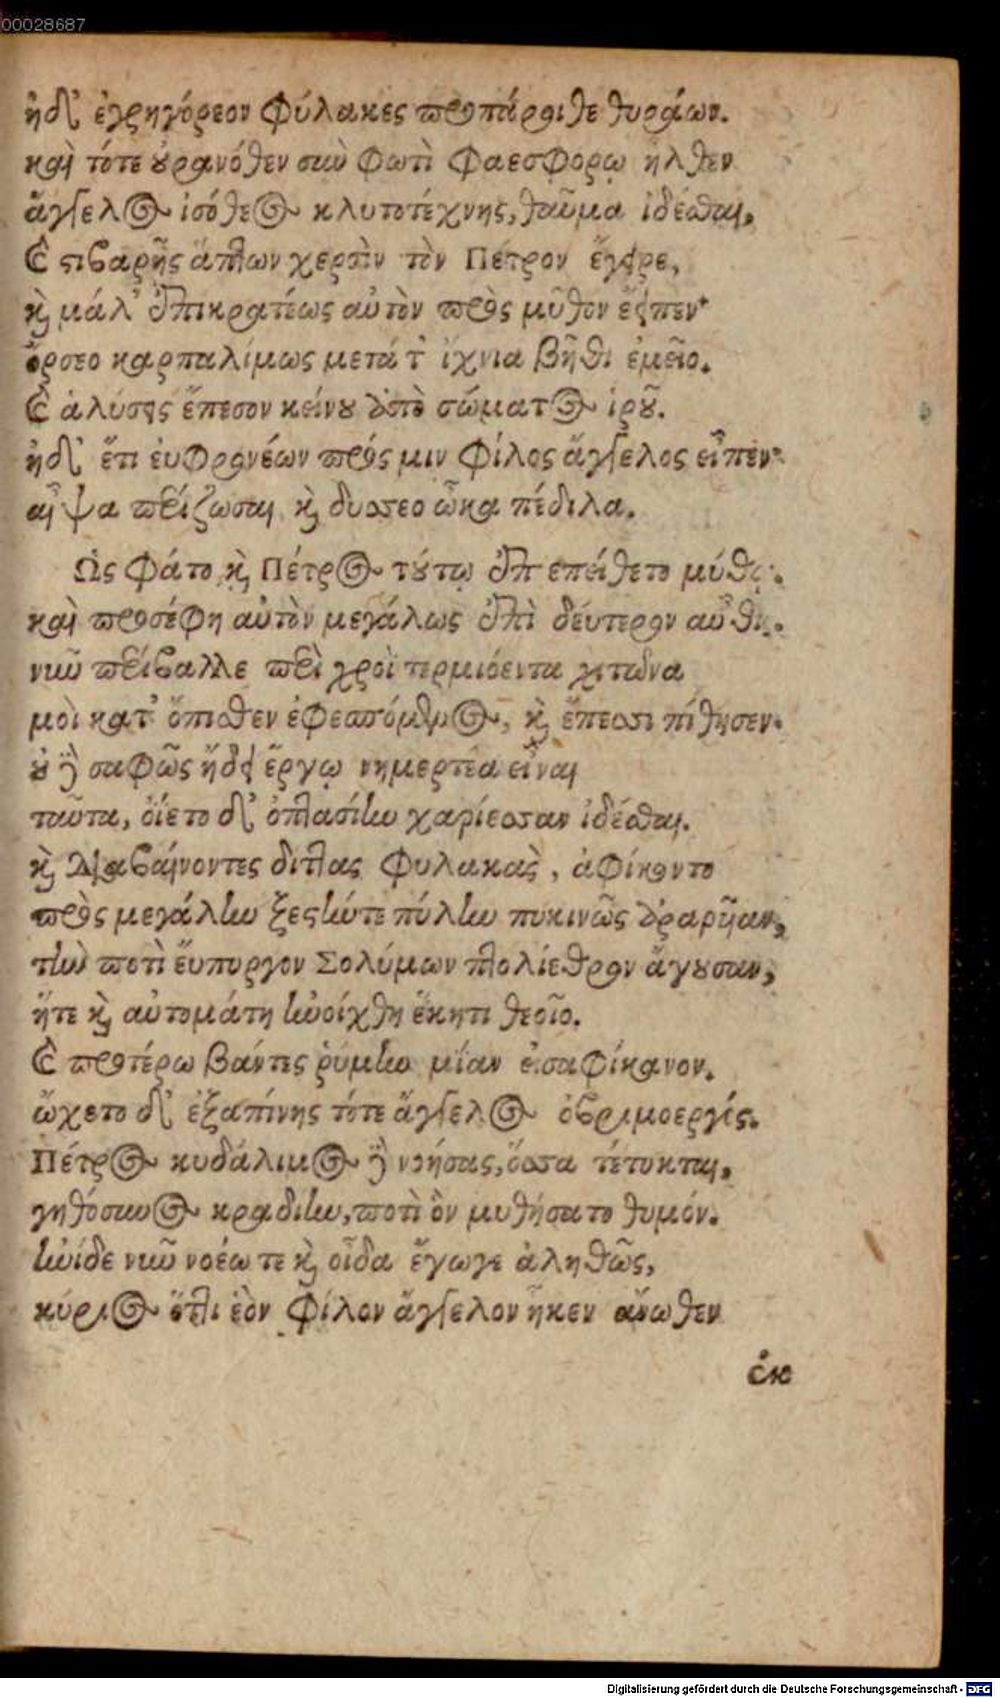 00028687
ἠδ' ἐγρηγόρεον φύλακες προπάροιθε θυράων.
καὶ τότε ουρανόθεν σιω φωτὶ φαεσφορῳ ἦλθεν
ἄγγελος ἰσόθεος κλυτοτέχνης, θαῦμα ἰδέσθαι,
ἐ στιβαρῆς ἁπλων χερσὶν τὸν Πέτρον ἔγειρε,
κὶ μάλ' ἐπικρατέως αὐτὸν πρὸς μῦθον ἔειπεν·
ὄρσεο καρπαλίμως μετά τ' ἴχνια βῆθι ἐμεῖο.
ἐ ἁλύσεις ἔπεσον κείνου ἀπὸ σώματος ἱροῦ.
ἠδ' ἔτι ἐυφρονέων πρός μιν φίλος ἄγγελος εἶπεν·
αἶψα περίζωσαι κὶ δυσσεο ὦκα πέδιλα.
Ως φάτο κὶ Πέτρος τούτῳ ἐπεπείθετο μύθῳ.
καὶ προσέφη αὐτὸν μεγάλως ἐπὶ δεύτερον αὖθις.
νιῦ περίβαλλε περὶ χροὶ τερμιόεντα χιτῶνα
μοὶ κατ' ὄπισθεν ἐφεσπόμενος, κὶ ἔπεσσι πίθησεν.
οὐ γὸ σαφῶς ἤδει ἔργῳ νημερτέα εἶναι
ταῦτα, ὀΐετο δ' ὀπλασίην χαρίεσσαν ἰδέσθαι.
κὶ διαβαίνοντες διπλας φυλακὰς, ἀφίκοντο
πρὸς μεγάλην ξεστήν τε πύλην πυκινῶς ἀραρῆαν,
τὴν ποτὶ ἔυπυργον Σολύμων πλολίεθρον ἄγουσαν,
ἥτε κὶ αὐτομάτη ἠνοίχθη ἕκητι θεοῖο.
ἐ προτέρω βάντες ῥύμην μίαν εἰσαφίκανον.
ᾤχετο δ' ἐξαπίνης τότε ἄγγελος ὀβριμοεργός.
Πέτρος κυδάλιμος γὸ νοήσας, ὅσσα τέτυκται,
γηθόσυνος κραδίην, ποτὶ ὃν μυθήσατο θυμόν.
ἠνίδε νιῦ νοέω τε κὶ οἶδα ἔγωγε ἀληθῶς,
κύριος ὅτι ἑὸν φίλον ἄγγελον ἧκεν ἄνωθεν
ἐκ
Digitalisierung gefördert durch die Deutsche Forschungsgemeinschaft - DFG